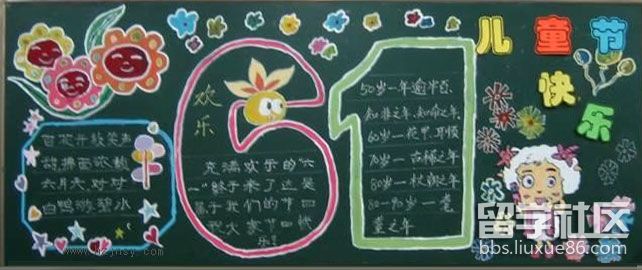 儿童节
快乐
欢乐
充满欢乐的“六
一”终于来了这是
属于我们的节日
祝大家节日快
乐!
50岁一年逾半百、
知非之年、知命之年
60岁一花甲、耳顺
70岁一古稀之年
80岁一杖朝之年
80-90岁一耄
耋之年
百花开放笑声
六月天对对
白鹅戏碧水
留学社区
bbs.liuxue86.com